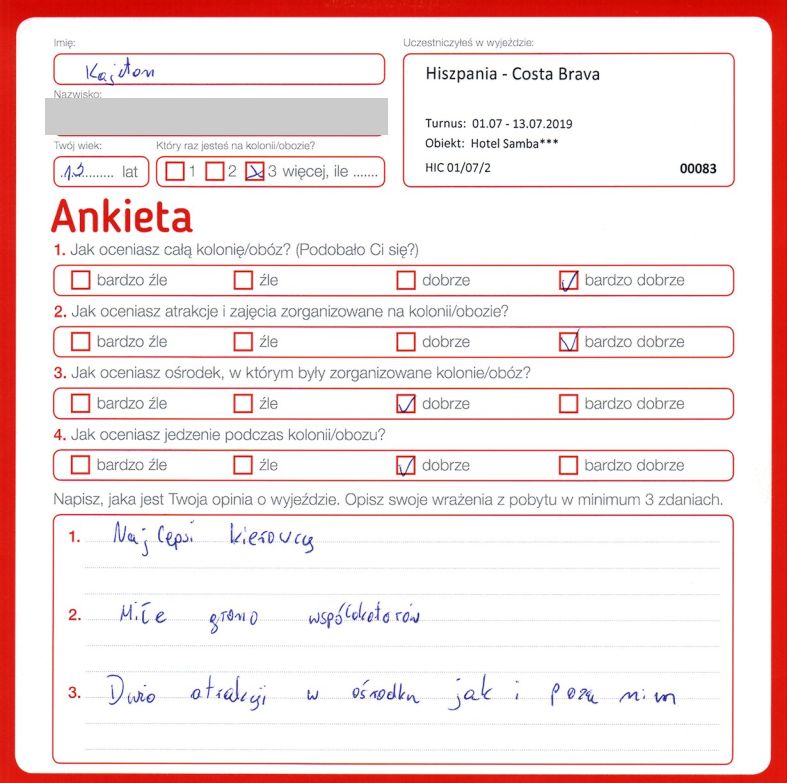 Imię:
Kajetan
Nazwisko:
Twój wiek:
13 lat
Który raz jesteś na kolonii/obozie?
1 2 3 więcej, ile .......
Uczestniczyłeś w wyjeździe:
Hiszpania - Costa Brava
Turnus: 01.07 - 13.07.2019
Obiekt: Hotel Samba***
HIC 01/07/2 00083
Ankieta
1. Jak oceniasz całą kolonię/obóz? (Podobało Ci się?)
bardzo źle źle dobrze bardzo dobrze
2. Jak oceniasz atrakcje i zajęcia zorganizowane na kolonii/obozie?
bardzo źle źle dobrze bardzo dobrze
3. Jak oceniasz ośrodek, w którym były zorganizowane kolonie/obóz?
bardzo źle źle dobrze bardzo dobrze
4. Jak oceniasz jedzenie podczas kolonii/obozu?
bardzo źle źle dobrze bardzo dobrze
Napisz, jaka jest Twoja opinia o wyjeździe. Opisz swoje wrażenia z pobytu w minimum 3 zdaniach.
1. Najlepsi kierowcy
2. Miłe grono współlokatorów
3. Dużo atrakcji w ośrodku jak i poza nim